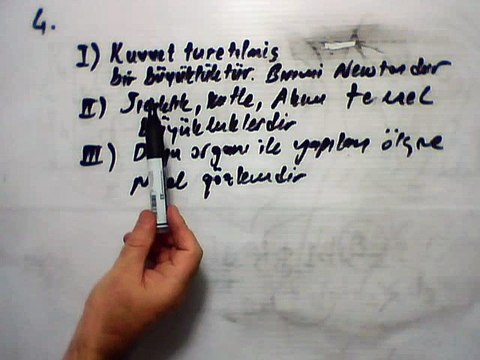 4.
I) Kuvvet türetilmiş
bir büyüklüktür. Birimi Newtondur
II) Sıcaklık, kütle, Akım temel
büyüklüklerdir
III) Duyu organı ile yapılan ölçme
gözlemdir